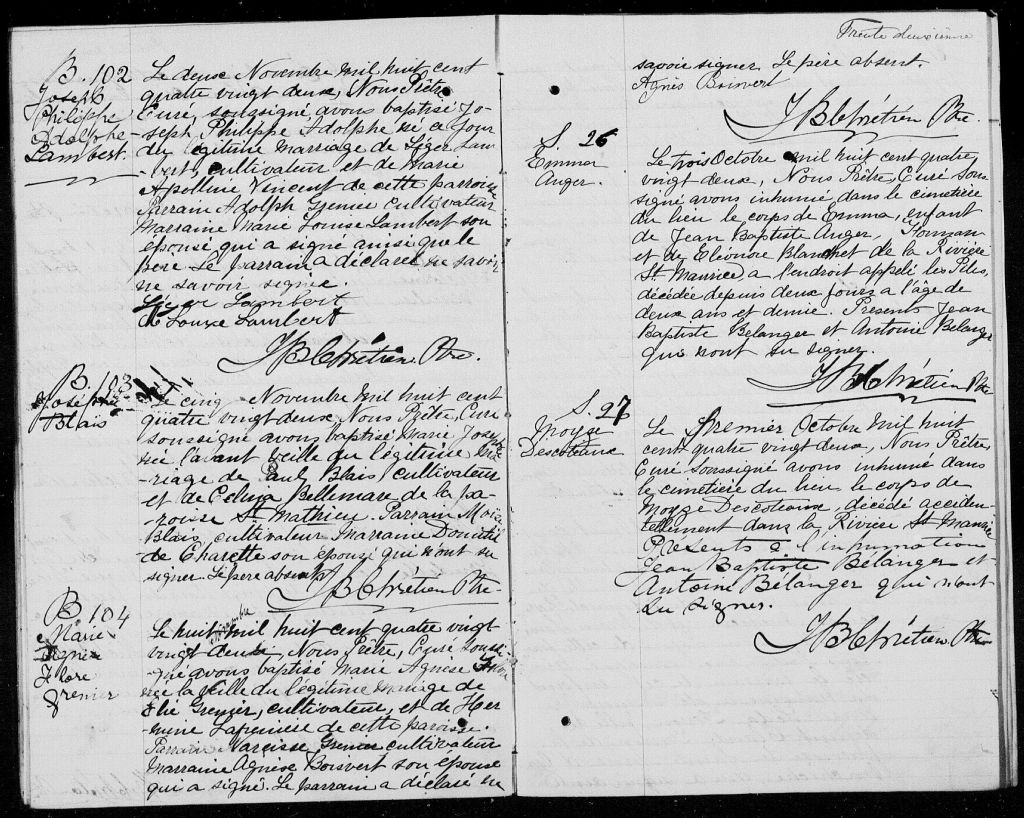 B. 102
Joseph
Philippe
Adolphe
Lambert.
Le deux Novembre mil huit cent
quatre vingt deux, Nous Prêtre
Curé, soussigné, avons baptisé Jo-
seph Philippe Adolphe né ce jour
du légitime mariage de Léger Lam-
bert, cultivateur et de Marie
Apolline Vincent de cette parroisse
Parrain Adolph Grenier cultivateur
Marraine Marie Louise Lambert son
épouse, qui a signé ainsi que le
père. Le parrain a déclaré ne savoir
ne savoir signée.
Lambert
Louise Lambert
JB Chrétien Ptre.
B. 103
Joseph
Blais
Le cinq Novembre mil huit cent
quatre vingt deux Nous Prêtre, Curé
soussigné avons baptisé Marie Joseph
né l'avant veille du légitime ma-
riage de Paul Blais cultivateur
et de Celina Bellemare de la pa-
roisse St Mathieu. Parrain Moise
Blais, cultivateur Marraine Domitil-
de Charette son épouse qui n'ont su
signer. Le père absent
JB Chrétien Ptre
B. 104
Marie
Agnès
Flore
Grenier
novembre
Le huit mil huit cent quatre vingt
vingt deux, Nous Prêtre, Curé soussi-
gné avons baptisé Marie Agnèse Flore
née la veille du légitime mariage de
Elie Grenier, cultivateur, et de Her-
mine Lapensée de cette paroisse.
Parrain Narcisse Grenier cultivateur
Marraine Agnèse Boisvert son épouse
qui a signé. Le parrain a déclaré ne
Trente deuxième
savoir signer Le père absent.
Agnès Boisvert
JB Chrétien Ptre.
S. 26
Emma
Anger.
Le trois Octobre mil huit cent quatre
vingt deux, Nous Prêtre, Curé sous-
signé avons inhumé dans le cimetière
du lieu le corps de Emma, enfant
de Jean Baptiste Anger,
et de Eléonore Blanchet de la Rivière
St Maurice a l'endroit appelé les Piles,
décédée depuis deux jours a l'âge de
deux ans et demie. Présents Jean
Baptiste Bélanger et Antoine Bélanger
qui n'ont su signer.
JB Chrétien Ptre
S. 27
Moyze
Descoteaux
Le premier Octobre mil huit
cent quatre vingt deux, Nous Prêtre,
Curé soussigné avons inhumé dans
le cimetière du lieu le corps de
Moyze Descoteaux, décédé acciden-
tellement dans la Rivière St Maurice
Présents à l'inhumation
Jean Baptiste Bélanger et
Antoine Bélanger qui n'ont
su signer.
JB Chrétien Ptre